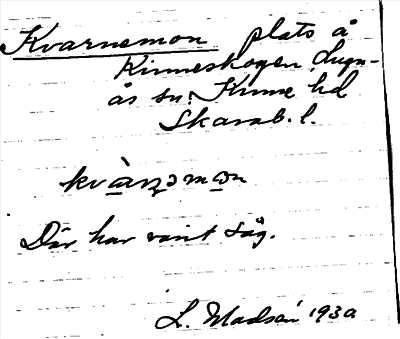 Kvarnemon plats å
Kinneskogen Lugn-
ås sn. Kinne hd
Skarab. l.
kvàrnəmon
Där har varit såg.
L. Madsén 1930